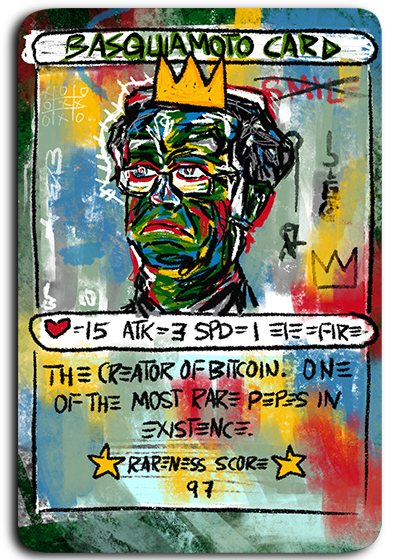 BASQUIAMOTO CARD
=15 ATK=3 SPD=1 ELE=FIRE
THE CREATOR OF BITCOIN. ONE
OF THE MOST RARE PEPES IN
EXISTENCE.
RARENESS SCORE
97